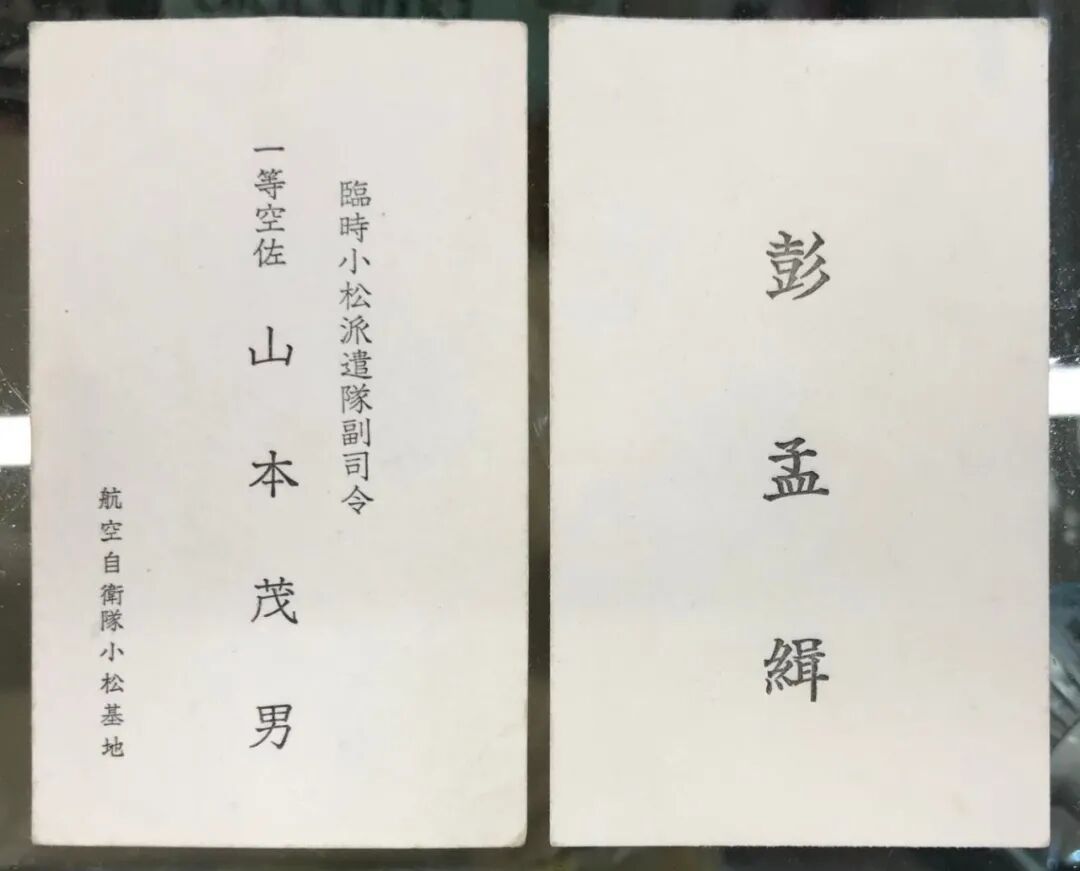 臨時小松派遣隊副司令
一等空佐 山本茂男
航空自衛隊小松基地
彭孟緝